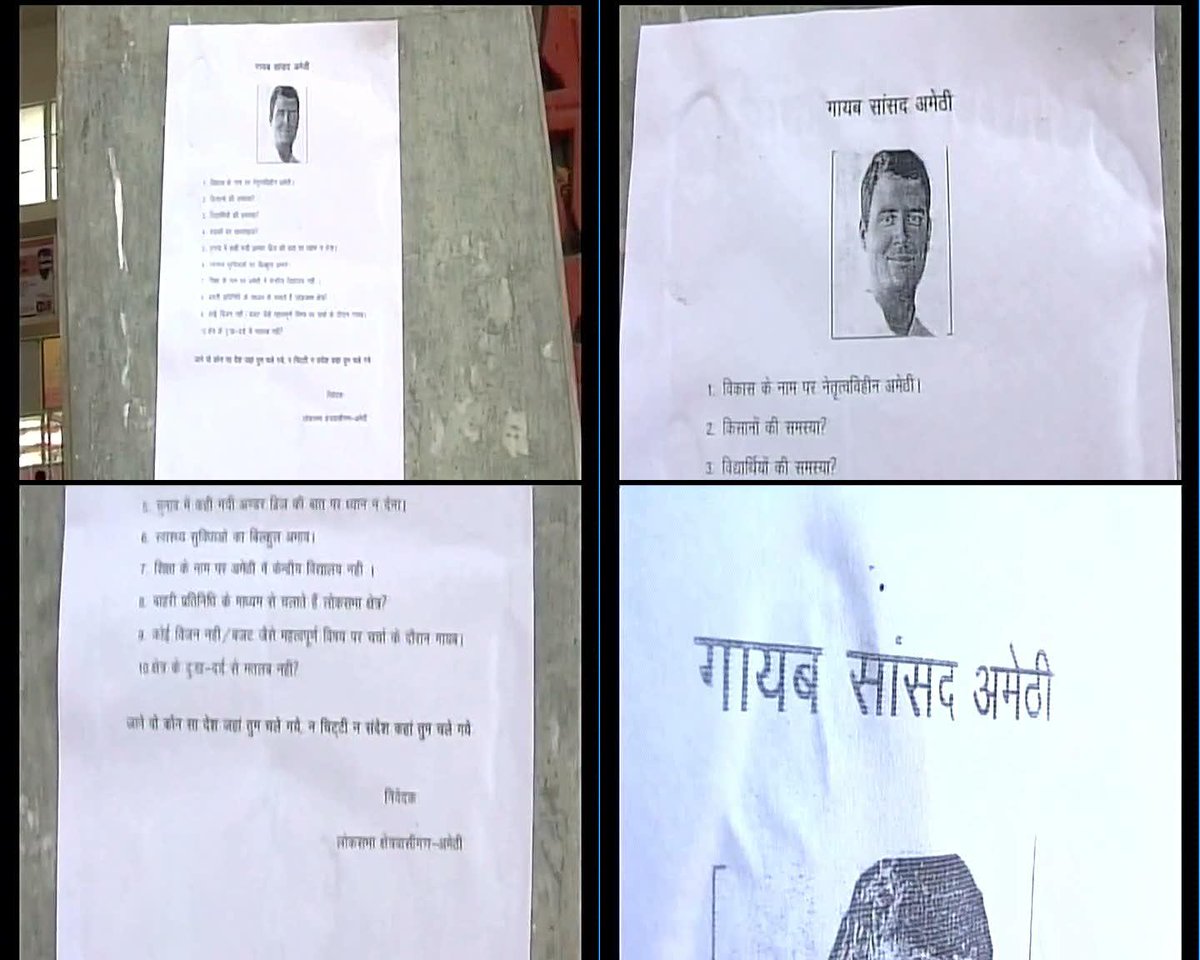 गायब सांसद अमेठी
1. विकास के नाम पर नेतृत्वविहीन अमेठी।
2. किसानों की समस्या?
3. विद्यार्थियों की समस्या?
4.
5. चुनाव में कही गयी अण्डर ब्रिज की बात पर ध्यान न देना।
6. स्वास्थ्य सुविधाओं का बिल्कुल अभाव।
7. शिक्षा के नाम पर अमेठी में केन्द्रीय विद्यालय नही ।
8. बाहरी प्रतिनिधि के माध्यम से चलाते हैं लोकसभा क्षेत्र?
9. कोई विजन नही/बजट जैसे महत्वपूर्ण विषय पर चर्चा के दौरान गायब।
10.क्षेत्र के दुःख-दर्द से मतलब नहीं?
जाने वो कौन सा देश जहां तुम चले गये, न चिट्टी न संदेश कहां तुम चले गये
निवेदक
लोकसभा क्षेत्रवासीगण-अमेठी
गायब सांसद अमेठी
1. विकास के नाम पर नेतृत्वविहीन अमेठी।
2. किसानों की समस्या?
3. विद्यार्थियों की समस्या?
5. चुनाव में कही गयी अण्डर ब्रिज की बात पर ध्यान न देना।
6. स्वास्थ्य सुविधाओं का बिल्कुल अभाव।
7. शिक्षा के नाम पर अमेठी में केन्द्रीय विद्यालय नही ।
8. बाहरी प्रतिनिधि के माध्यम से चलाते हैं लोकसभा क्षेत्र?
9. कोई विजन नही/बजट जैसे महत्वपूर्ण विषय पर चर्चा के दौरान गायब।
10.क्षेत्र के दुःख-दर्द से मतलब नहीं?
जाने वो कौन सा देश जहां तुम चले गये, न चिट्टी न संदेश कहां तुम चले गये
निवेदक
लोकसभा क्षेत्रवासीगण-अमेठी
गायब सांसद अमेठी